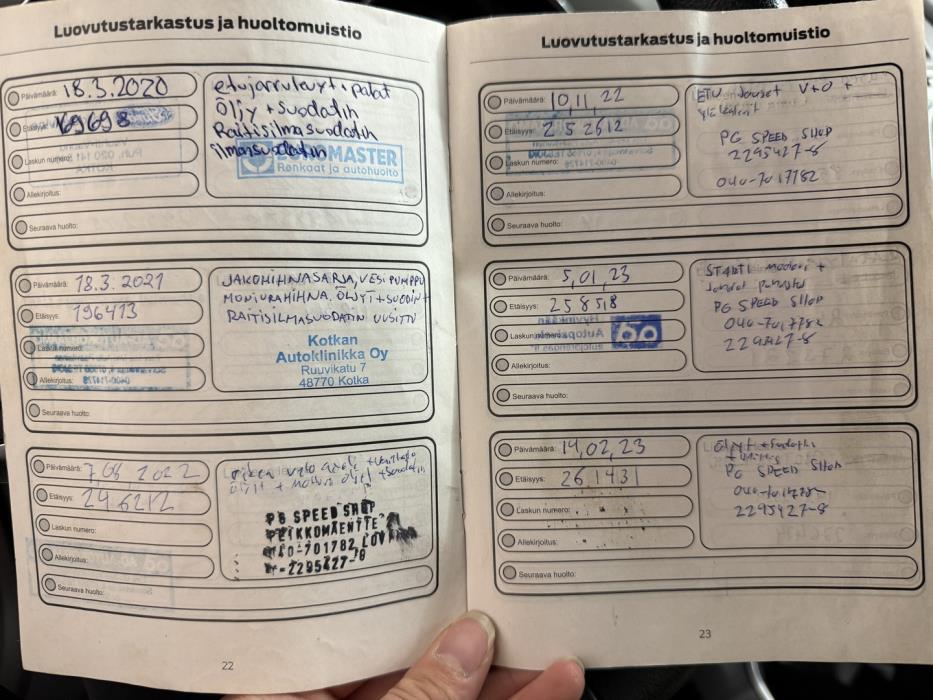 Luovutustarkastus ja huoltomuistio
Päivämäärä: 18.3.2020
Etäisyys: 169698
Laskun numero:
Allekirjoitus:
Seuraava huolto:
etujarrulevyt + palat
öljy + suodatin
Raitisilmasuodatin
ilmasuodatin
MASTER
Renkaat ja autohuolto
Päivämäärä: 18.3.2021
Etäisyys: 196413
Laskun numero:
Allekirjoitus:
Seuraava huolto:
JAKOHIHNASARJA, VESIPUMPPU
MONIURAHIHNA. ÖLJYT+SUODIN+
RAITISILMASUODATIN UUSITTU
Kotkan
Autoklinikka Oy
Ruuvikatu 7
48770 Kotka
Päivämäärä: 2022
Etäisyys: 246212
Laskun numero:
Allekirjoitus:
Seuraava huolto:
öljyt + moottori öljyt + suodatin
PG SPEED SHOP
2295427-8
22
Luovutustarkastus ja huoltomuistio
Päivämäärä: 10,11,22
Etäisyys: 252612
Laskun numero:
Allekirjoitus:
Seuraava huolto:
ETU Jouset V+O +
PG SPEED SHOP
2295427-8
040-7017782
Päivämäärä: 5,01,23
Etäisyys: 258518
Laskun numero:
Allekirjoitus:
Seuraava huolto:
STARTTI moottori +
PG SPEED SHOP
Päivämäärä: 14,02,23
Etäisyys: 261431
Laskun numero:
Allekirjoitus:
Seuraava huolto:
PG SPEED SHOP
2295427-8
23